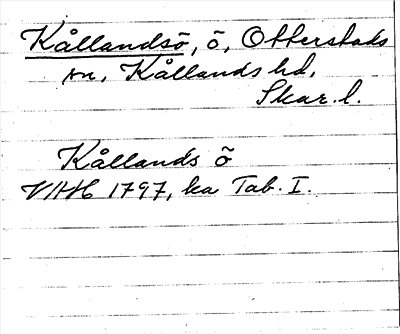 Kållandsö, ö, Otterstads
sn, Kållands hd,
Skar. l.
Kållands ö
VHAH 1797, ka Tab. I.